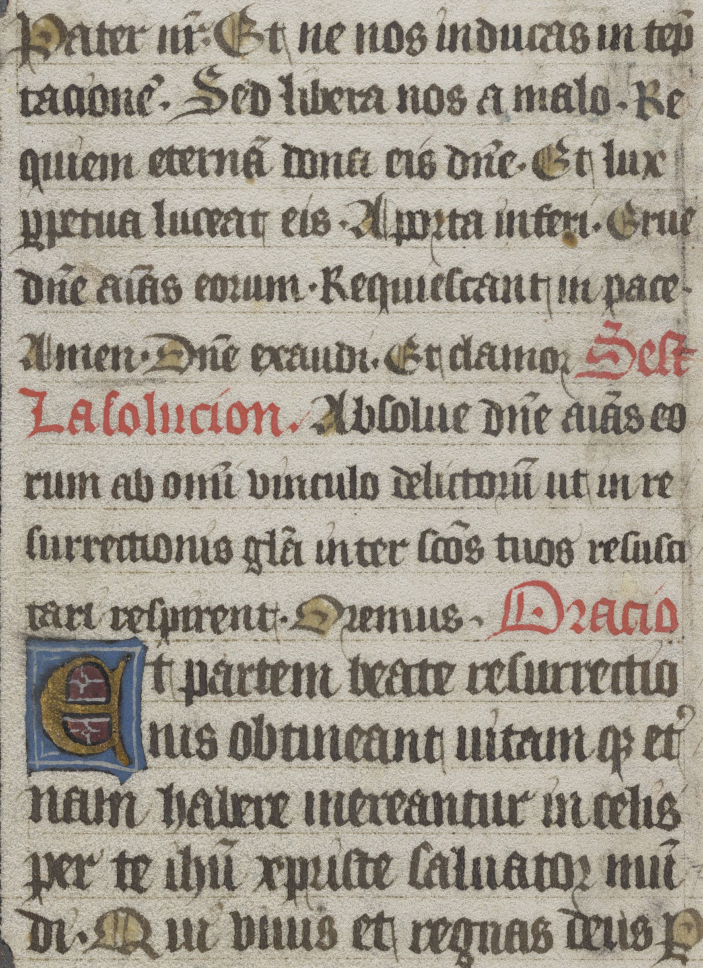 Pater nr̄. Et ne nos inducas in tēp
tacionē. Sed libera nos a malo. Re
quiem eternā dona eis dn̄e. Et lux
ꝑpetua luceat eis. A porta inferi. Erue
dn̄e aīas eorum. Requiescant in pace.
Amen. Dn̄e exaudi. Et clamor
La solucion. Absolue dn̄e aīas eo
rum ab omī vinculo delictorū ut in re
surrectionis gl̄a inter sc̄os tuos resusci
tati respirent. Oremus. Oracio
Et partem beate resurrectio
nis obtineant uitam qꝫ et᷒
nam habere mereantur in celis
per te ihū xpriste saluator mū
di. Qui viuis et regnas deus P